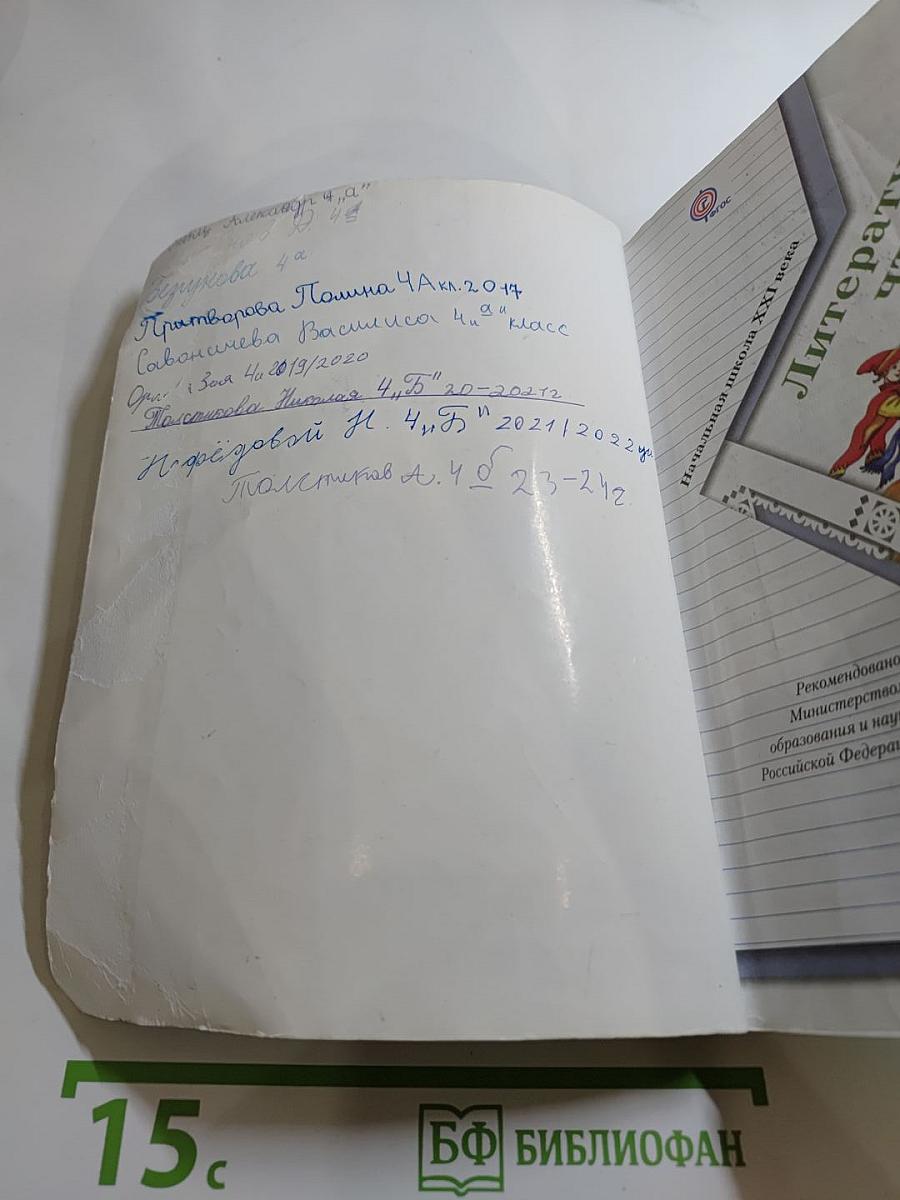 Александр 4„а"
4Б
Безрукова 4а
Притворова Полина 4А кл. 2017
Василиса 4„а" класс
Зоя 4а 2019/2020
Толстикова Николая 4„Б" 20-2021г
Н. 4„Б" 2021/2022
Толстиков А. 4 б 23-24г.
ФГОС
Начальная школа XXI века
Литерат
чт
Рекомендовано
Министерство
образования и нау
Российской Федерац
15 с
БФ БИБЛИОФАН